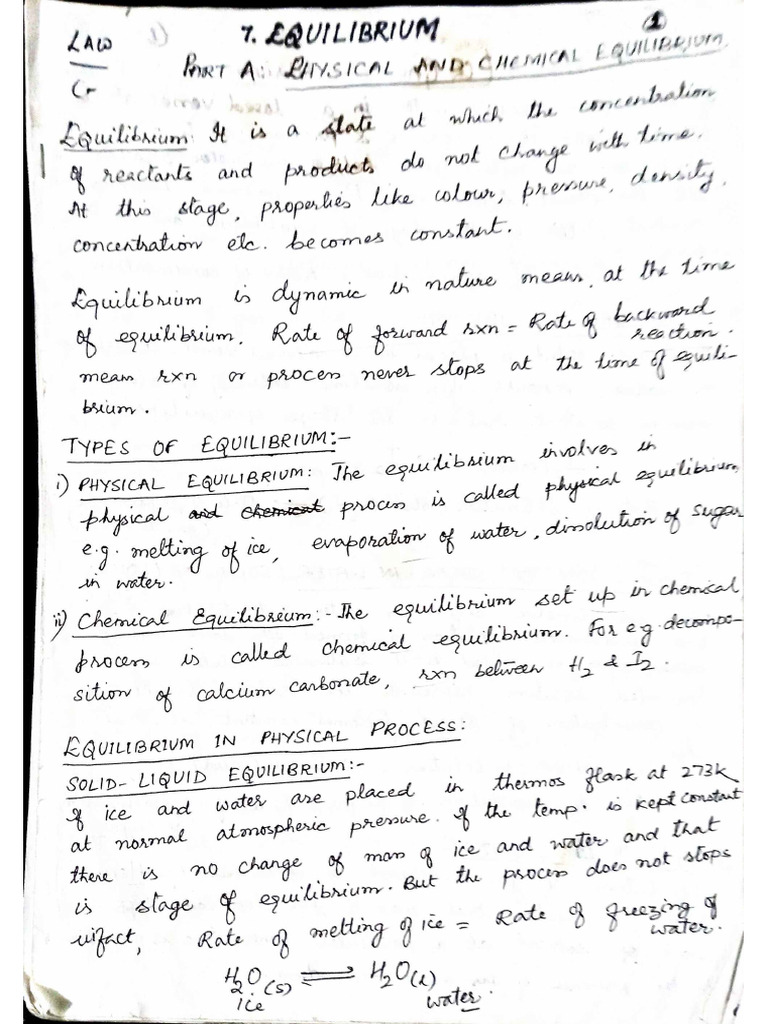 LAW 1) 7. EQUILIBRIUM 1
PART A: PHYSICAL AND CHEMICAL EQUILIBRIUM.
Equilibrium: It is a state at which the concentration
of reactants and products do not change with time.
At this stage, properties like colour, pressure, density,
concentration etc. becomes constant.
Equilibrium is dynamic in nature means, at the time
of equilibrium, Rate of forward rxn = Rate of backward
reaction.
mean rxn or process never stops at the time of equili-
brium.
TYPES OF EQUILIBRIUM:-
i) PHYSICAL EQUILIBRIUM: The equilibrium involves in
physical and chemical process is called physical equilibrium
e.g. melting of ice, evaporation of water, dissolution of sugar
in water.
ii) Chemical Equilibrium:- The equilibrium set up in chemical
process is called chemical equilibrium. For e.g. decompo-
sition of calcium carbonate, rxn between H2 & I2.
EQUILIBRIUM IN PHYSICAL PROCESS:
SOLID-LIQUID EQUILIBRIUM:-
If ice and water are placed in thermos flask at 273K
at normal atmospheric pressure. If the temp. is kept constant
there is no change of mass of ice and water and that
is stage of equilibrium. But the process does not stops
infact, Rate of melting of ice = Rate of freezing of
water.
H2O(s) ⇌ H2O(l)
ice water.